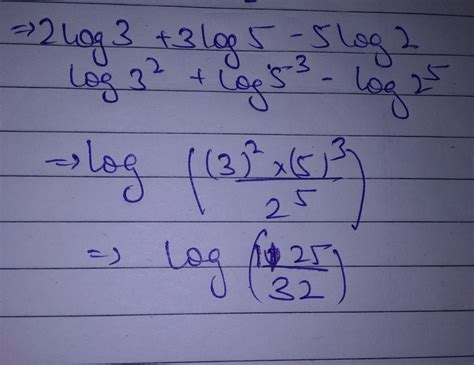 ⇒ 2log3 + 3log5 - 5log2
log3² + log5³ - log2⁵
⇒ log ((3)² × (5)³ / 2⁵)
⇒ log (1125 / 32)